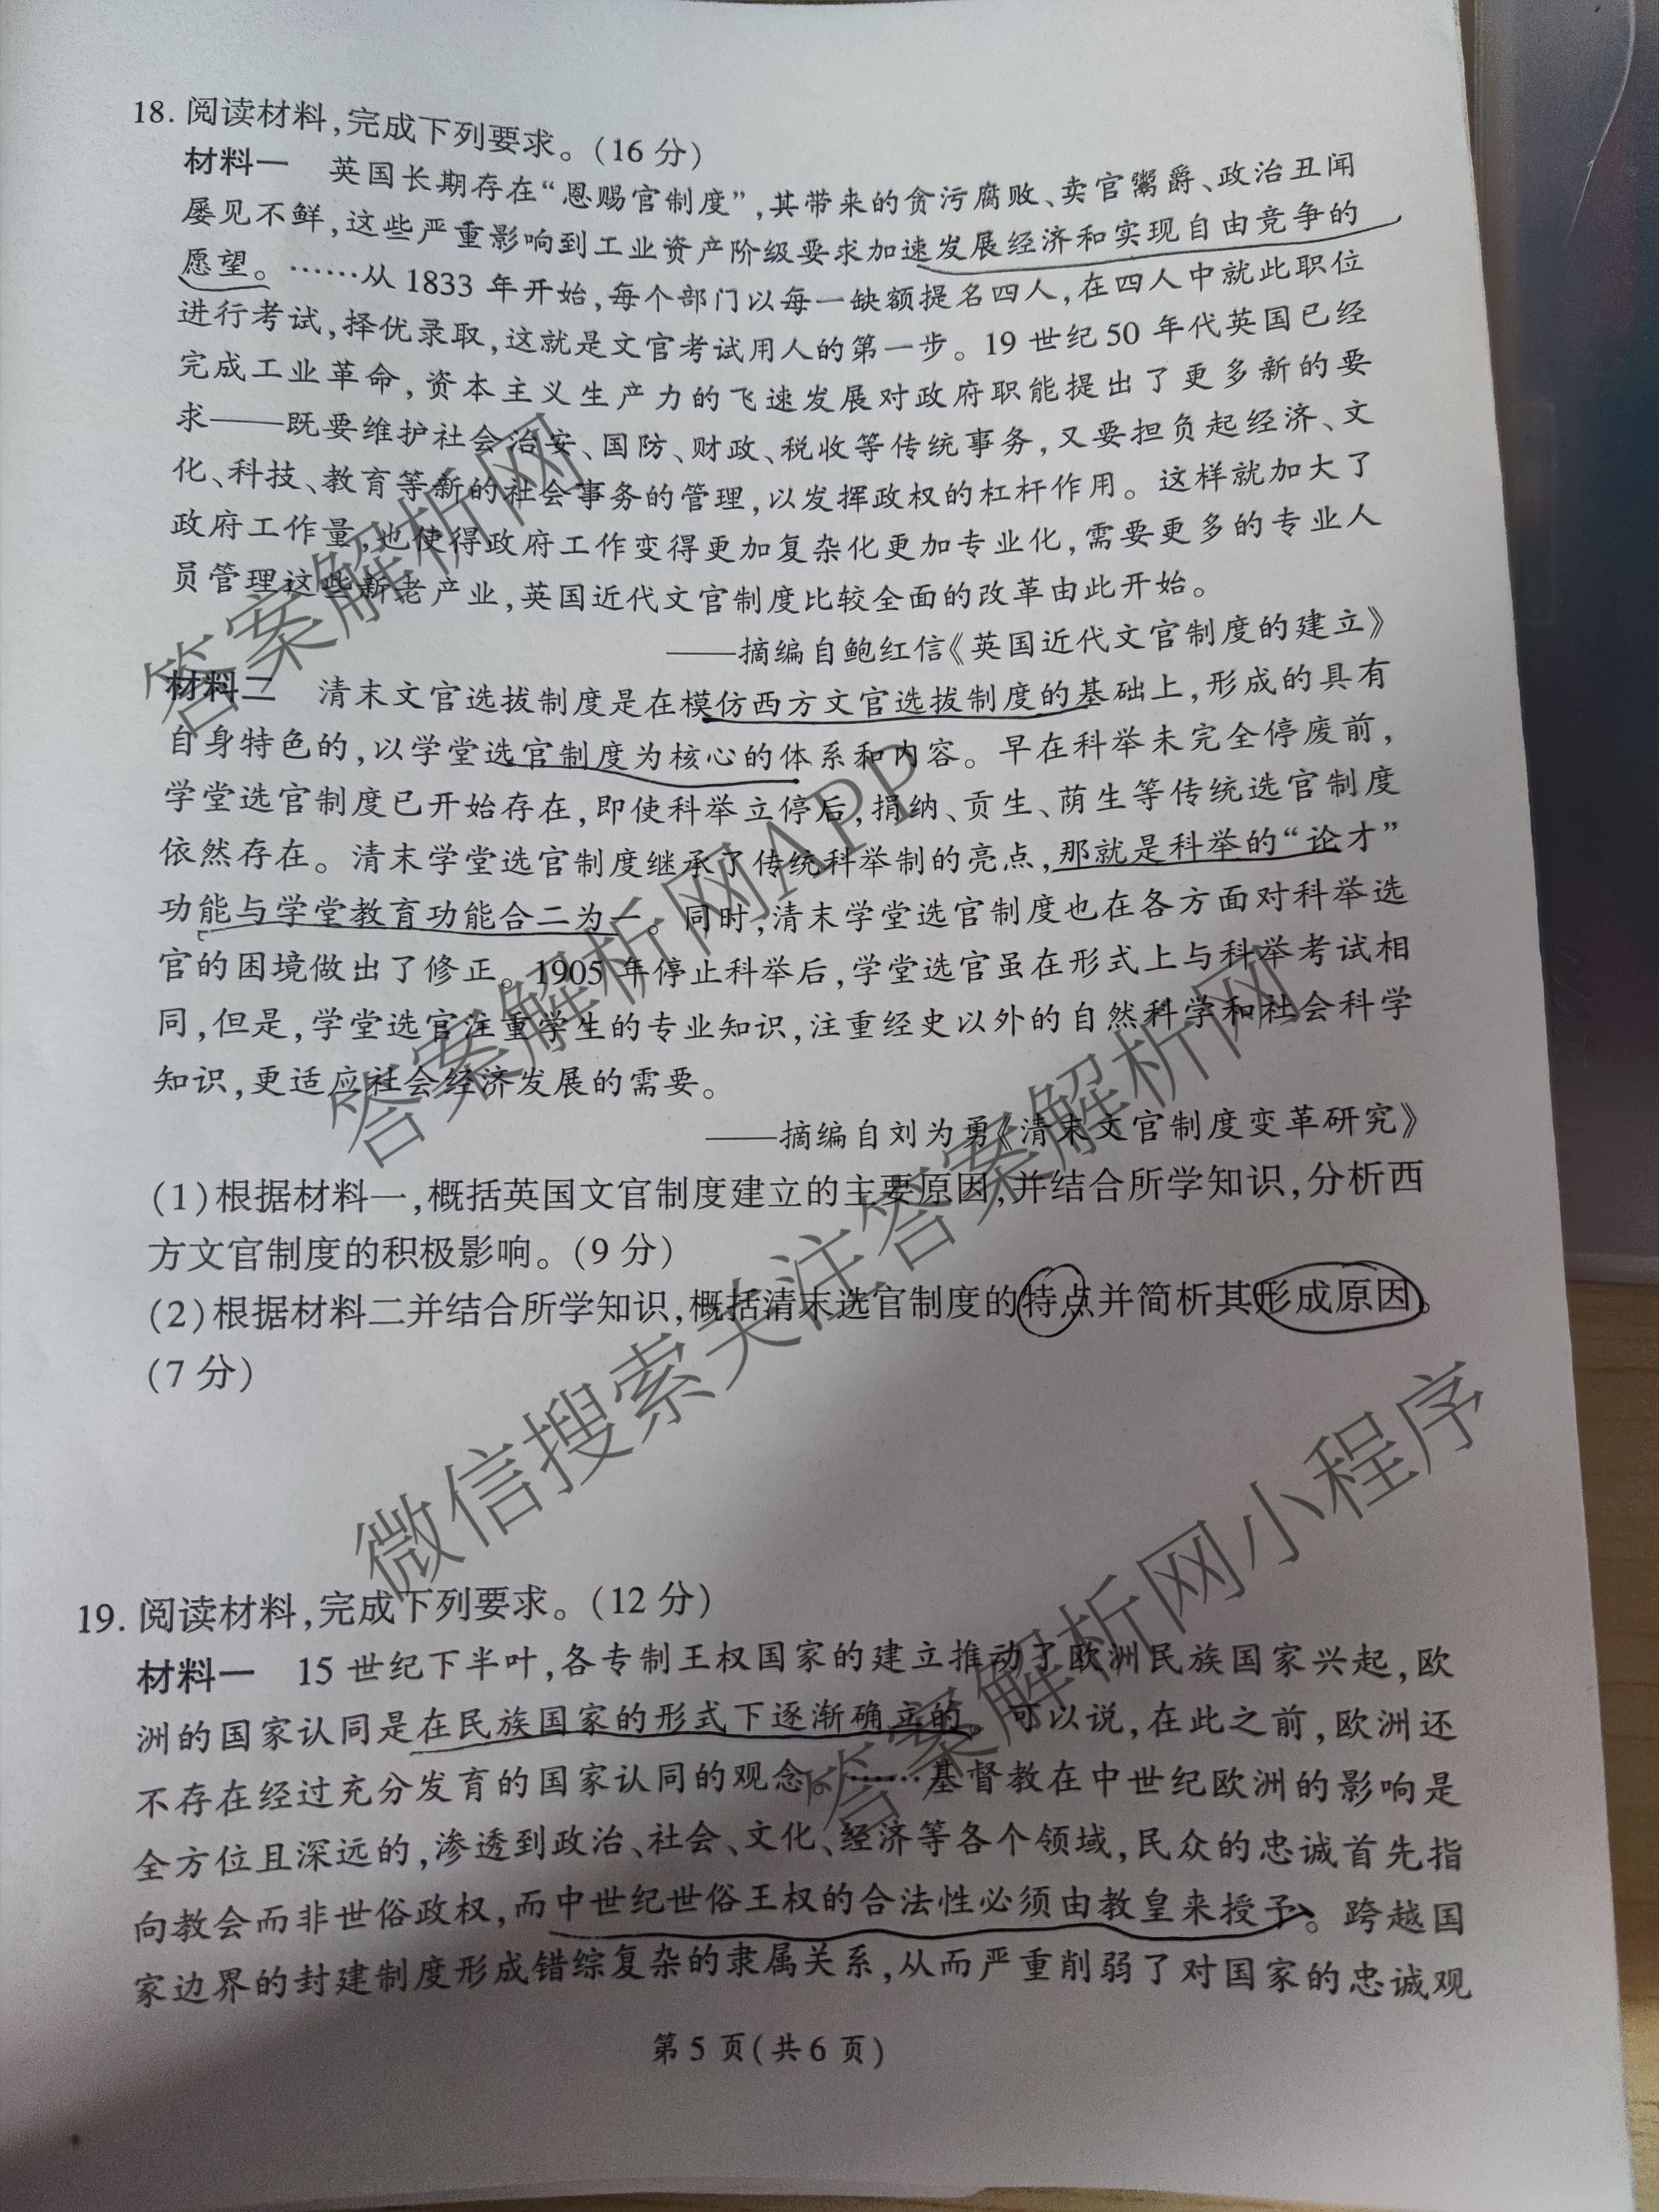 18. 阅读材料,完成下列要求。(16 分)
材料一 英国长期存在“恩赐官制度”,其带来的贪污腐败、卖官鬻爵、政治丑闻
屡见不鲜,这些严重影响到工业资产阶级要求加速发展经济和实现自由竞争的
愿望。……从 1833 年开始,每个部门以每一缺额提名四人,在四人中就此职位
进行考试,择优录取,这就是文官考试用人的第一步。19 世纪 50 年代英国已经
完成工业革命,资本主义生产力的飞速发展对政府职能提出了更多新的要
求——既要维护社会治安、国防、财政、税收等传统事务,又要担负起经济、文
化、科技、教育等新的社会事务的管理,以发挥政权的杠杆作用。这样就加大了
政府工作量,也使得政府工作变得更加复杂化更加专业化,需要更多的专业人
员管理这些新老产业,英国近代文官制度比较全面的改革由此开始。
——摘编自鲍红信《英国近代文官制度的建立》
材料二 清末文官选拔制度是在模仿西方文官选拔制度的基础上,形成的具有
自身特色的,以学堂选官制度为核心的体系和内容。早在科举未完全停废前,
学堂选官制度已开始存在,即使科举立停后,捐纳、贡生、荫生等传统选官制度
依然存在。清末学堂选官制度继承了传统科举制的亮点,那就是科举的“论才”
功能与学堂教育功能合二为一。同时,清末学堂选官制度也在各方面对科举选
官的困境做出了修正。1905 年停止科举后,学堂选官虽在形式上与科举考试相
同,但是,学堂选官注重学生的专业知识,注重经史以外的自然科学和社会科学
知识,更适应社会经济发展的需要。
——摘编自刘为勇《清末文官制度变革研究》
(1)根据材料一,概括英国文官制度建立的主要原因,并结合所学知识,分析西
方文官制度的积极影响。(9 分)
(2)根据材料二并结合所学知识,概括清末选官制度的特点并简析其形成原因。
(7 分)
19. 阅读材料,完成下列要求。(12 分)
材料一 15 世纪下半叶,各专制王权国家的建立推动了欧洲民族国家兴起,欧
洲的国家认同是在民族国家的形式下逐渐确立的。可以说,在此之前,欧洲还
不存在经过充分发育的国家认同的观念。……基督教在中世纪欧洲的影响是
全方位且深远的,渗透到政治、社会、文化、经济等各个领域,民众的忠诚首先指
向教会而非世俗政权,而中世纪世俗王权的合法性必须由教皇来授予。跨越国
家边界的封建制度形成错综复杂的隶属关系,从而严重削弱了对国家的忠诚观
第 5 页(共 6 页)
答案解析网
答案解析网APP
微信搜索关注答案解析网
答案解析网小程序